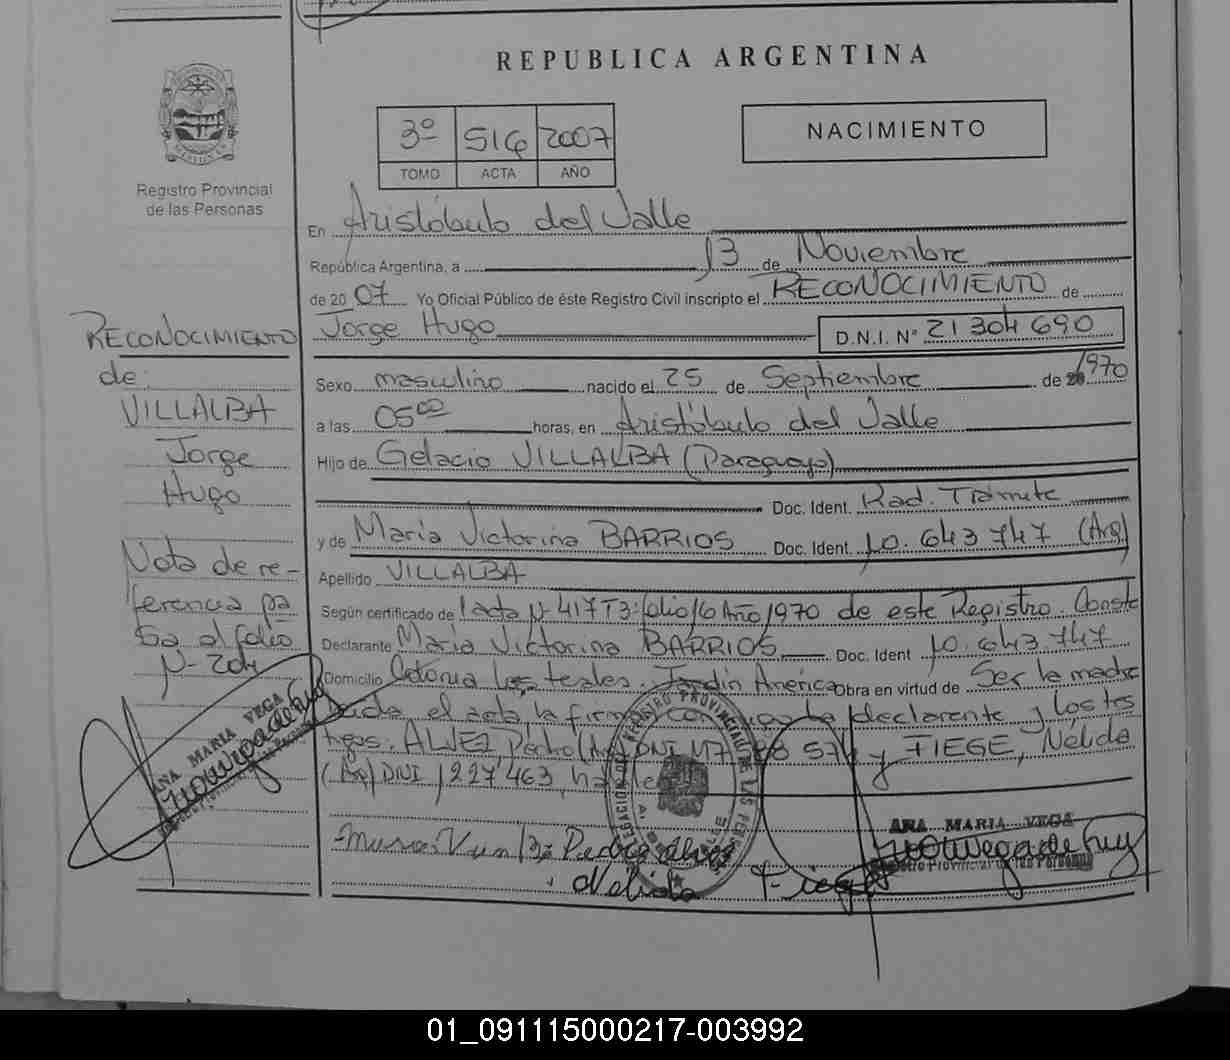 REPUBLICA ARGENTINA
NACIMIENTO
3º 516 2007
TOMO ACTA AÑO
Registro Provincial
de las Personas
En Aristóbulo del Valle
República Argentina, a 13 de Noviembre
de 2007 Yo Oficial Público de éste Registro Civil inscripto el RECONOCIMIENTO de
Jorge Hugo D.N.I. Nº 21 304 690
Sexo masculino nacido el 25 de Septiembre de 1970
a las 05:00 horas, en Aristóbulo del Valle
Hijo de Gelacio VILLALBA (Paraguayo)
Doc. Ident. Rad. Trámite
y de María Victorina BARRIOS Doc. Ident. 10.643 747 (Arg)
Apellido VILLALBA
Según certificado de 1 acta Nº 417 T3: folio 16 Año 1970 de este Registro. Conste
Declarante María Victorina BARRIOS Doc. Ident 10.643.747
Domicilio Colonia Los teales. Jardín América Obra en virtud de Ser la madre
el acta, la firma la declarante y los tes
tigos: Pedro DNI y FIEGE, Nélida
(Arg) DNI 1227463,
RECONOCIMIENTO
de:
VILLALBA
Jorge
Hugo
Nota de re-
ferencia pa
sa al folio
Nº 204
ANA MARIA VEGA
Pedro
ANA MARIA VEGA
Registro Provincial de las Personas
Nelida Fiege
01_091115000217-003992